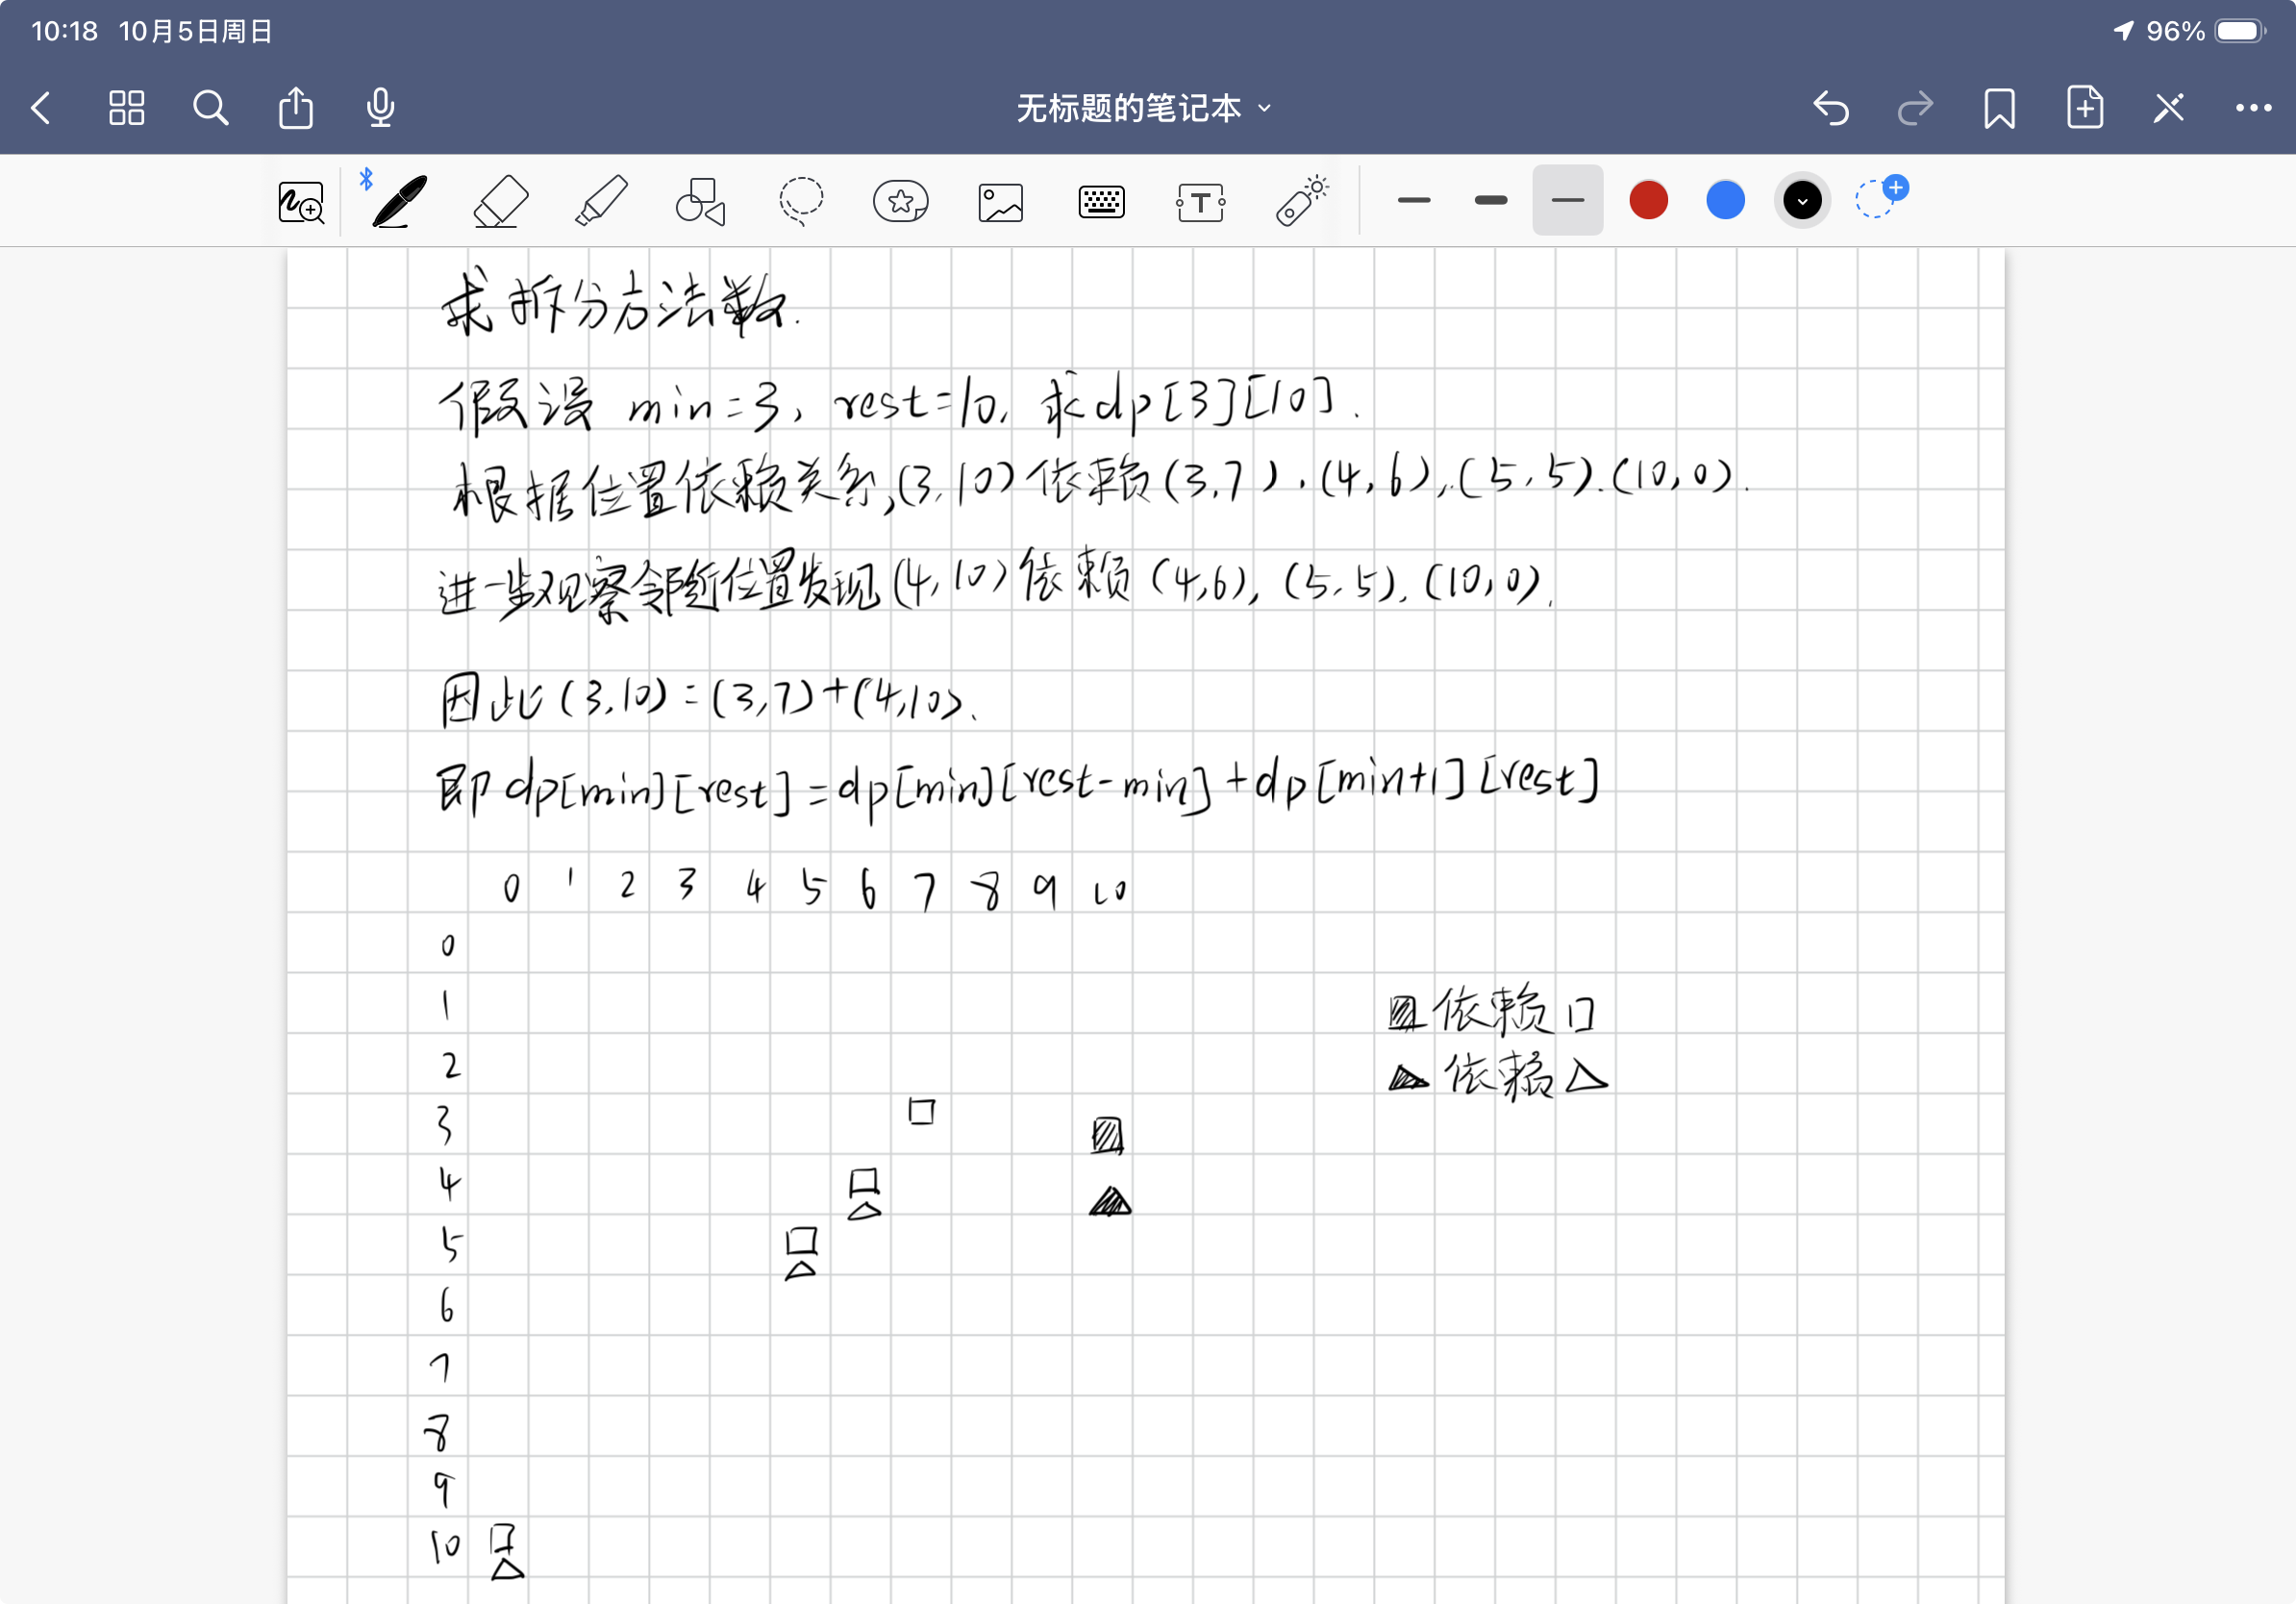 10:18 10月5日周日 96%
无标题的笔记本
求拆分方法数.
假设 min=3, rest=10, 求dp[3][10].
根据位置依赖关系,(3,10)依赖(3,7),(4,6),(5,5).(10,0).
进一步观察邻近位置发现(4,10)依赖(4,6),(5,5),(10,0).
因此(3,10)=(3,7)+(4,10).
即dp[min][rest]=dp[min][rest-min]+dp[min+1][rest]
0 1 2 3 4 5 6 7 8 9 10
0
1 依赖
2 依赖
3
4
5
6
7
8
9
10